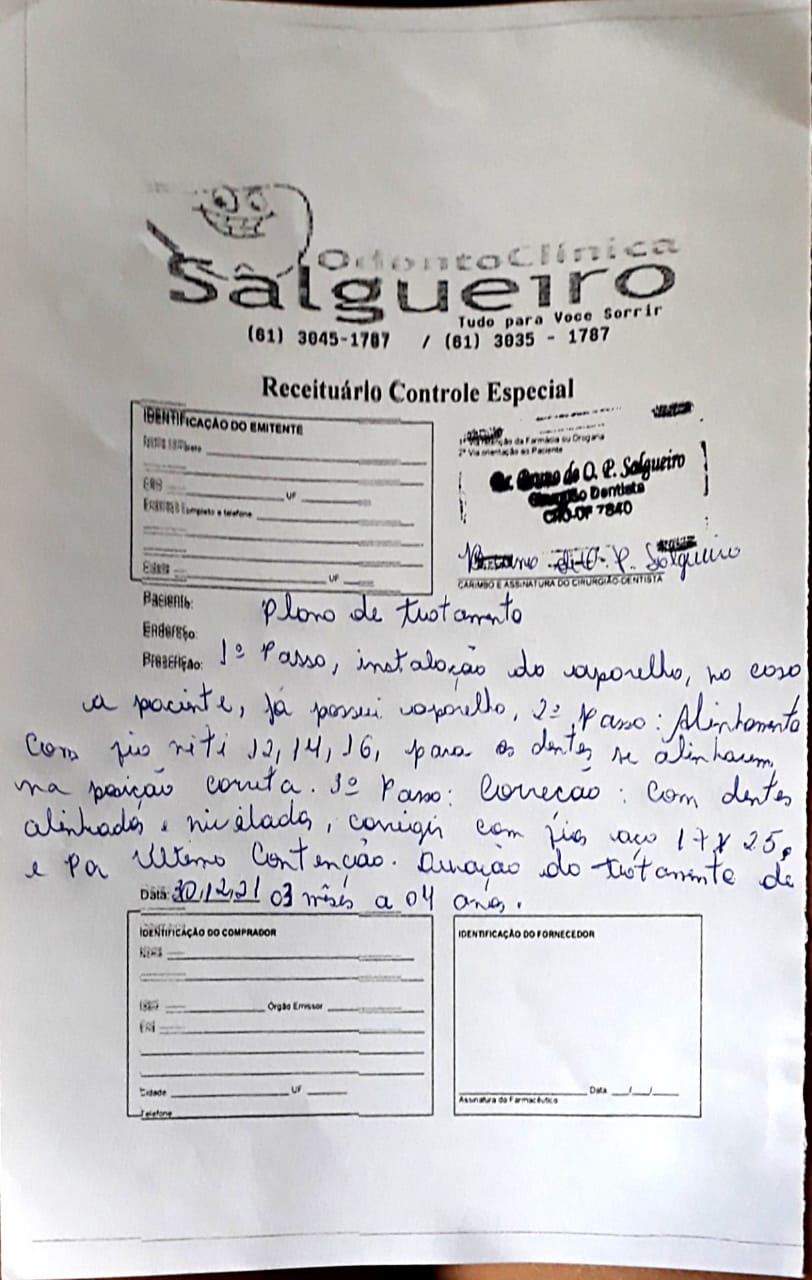 OdontoClínica
Salgueiro
Tudo para Voce Sorrir
(61) 3045-1787 / (61) 3035 - 1787
Receituário Controle Especial
IDENTIFICAÇÃO DO EMITENTE
UF
Completo e telefone
UF
da Farmácia ou Drogaria
2ª Via orientação ao Paciente
Dr. Bruno de O. P. Salgueiro
Cirurgião Dentista
CRO-DF 7840
Bruno de O. P. Salgueiro
CARIMBO E ASSINATURA DO CIRURGIÃO-DENTISTA
Paciente: Plano de tratamento
Endereço:
Prescrição: 1º Passo, instalação do aparelho, no caso
a paciente, já possui aparelho, 2º Passo: Alinhamento
Com fio niti 12, 14, 16, para os dentes se alinharem,
na posição correta. 3º Passo: Correcão: Com dentes
alinhados e nivelados, corrigir com fios aço 17 x 25,
e Por Ultimo Contenção. Duração do tratamento de
Data: 30,12,21 03 mêses a 04 anos.
IDENTIFICAÇÃO DO COMPRADOR
Órgão Emissor
Cidade UF
Telefone
IDENTIFICAÇÃO DO FORNECEDOR
Data __/__/__
Assinatura do Farmacêutico